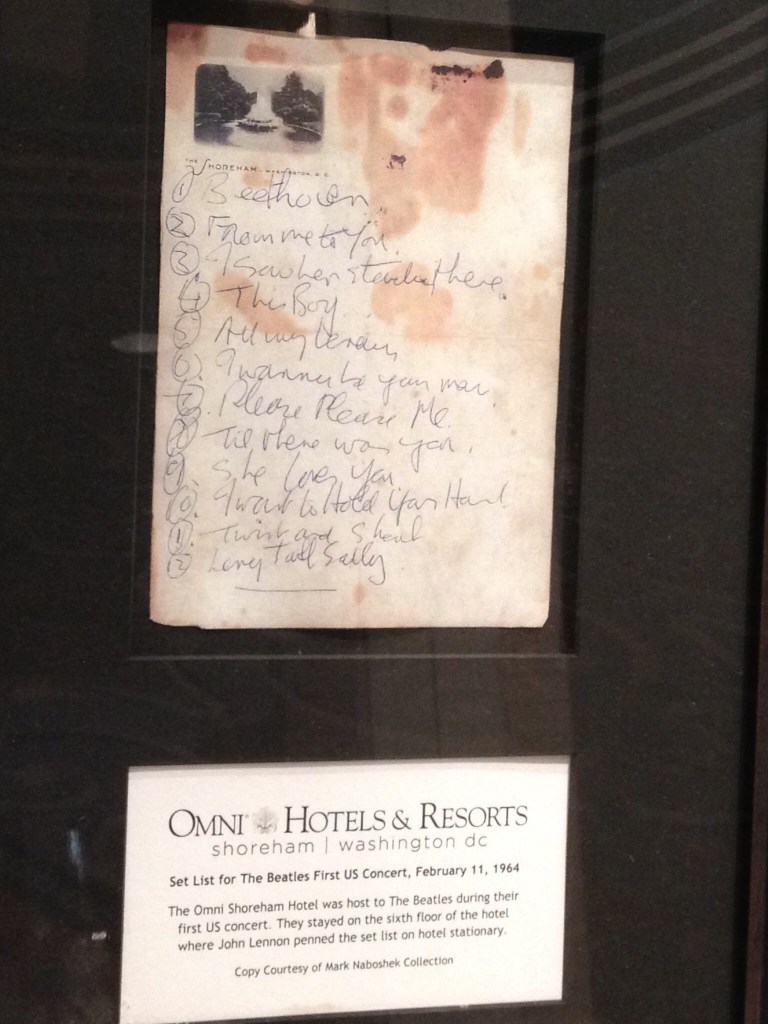 THE SHOREHAM - WASHINGTON, D.C.
1 Beethoven
2 From me to You.
3 I saw her standing there.
4 This Boy
5 All my loving
6. I wanna be your man.
7. Please Please Me.
8 Till there was you.
9. She loves You.
10. I want to Hold Your Hand
11. Twist and Shout
12 Long Tall Sally
OMNI HOTELS & RESORTS
shoreham | washington dc
Set List for The Beatles First US Concert, February 11, 1964
The Omni Shoreham Hotel was host to The Beatles during their
first US concert. They stayed on the sixth floor of the hotel
where John Lennon penned the set list on hotel stationary.
Copy Courtesy of Mark Naboshek Collection